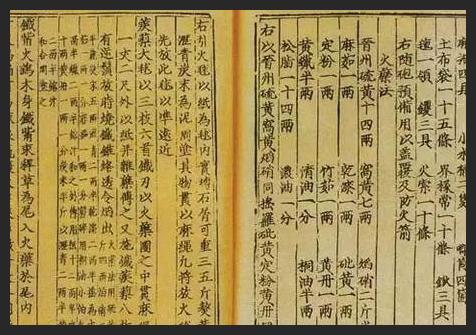 麻搭四具　小水桶二隻
土布袋一十五條　界椽索一十條　鍬三具
氊一領　钁三具　火索一十條
右隨砲預備用以蓋覆及防火箭
火藥法
晉州硫黃十四兩　窩黃七兩　焰硝二斤半
麻茹一兩　乾漆一兩　砒黃一兩
定粉一兩　竹茹一兩　黃丹一兩
黃蠟半兩　清油一分　桐油半兩
松脂一十四兩　濃油一分
右以晉州硫黃窩黃焰硝同擣羅砒黃定粉黃丹
右引火毬以紙為毬內實塼石屑可重三五斤熬黃
瀝青炭末為泥周塗其物貫以麻繩凡將放火
先放此毬以準遠近
蒺藜火毬以三枝六首鐵刃以火藥團之中貫麻繩
一丈二尺外以紙并雜藥傅之又施鐵蒺藜八枚
有逆鬚放時燒鐵錐烙透令焰出
鐵嘴火鷂木身鐵嘴束稈草為尾入火藥於尾內